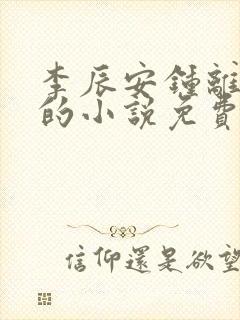 李辰安鍾離
的小說免費
信仰還是欲望